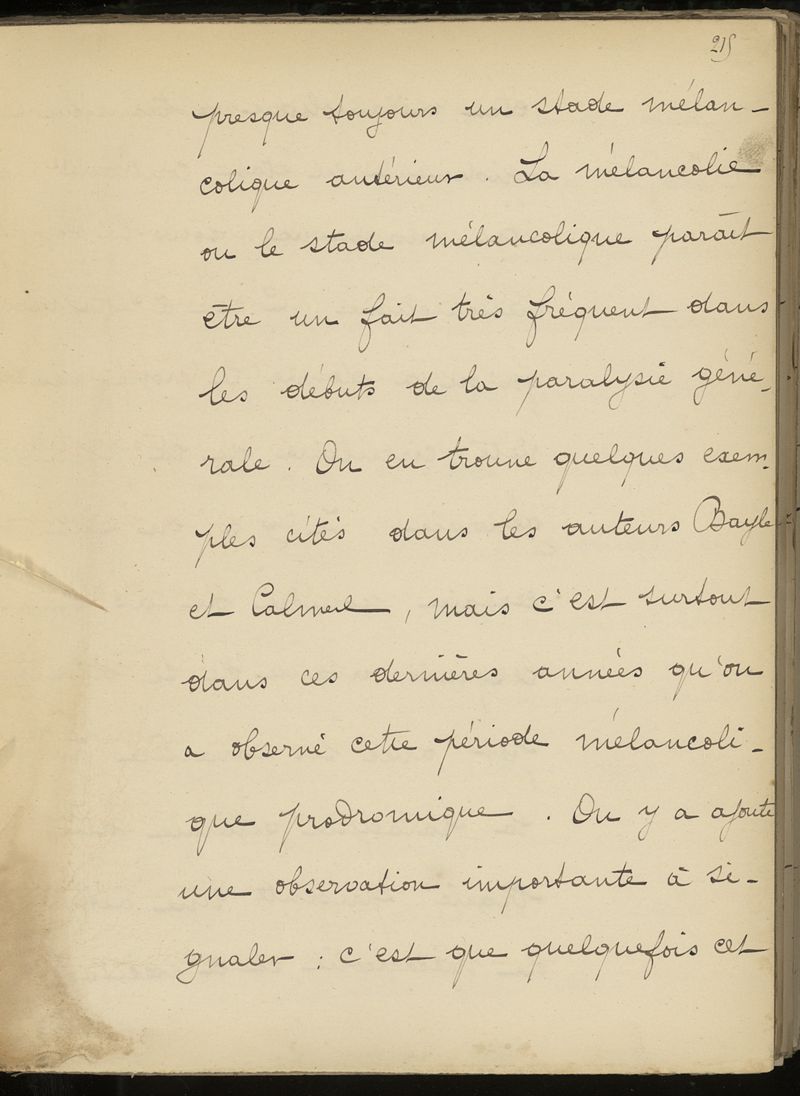 215
presque toujours un stade mélan-
colique antérieur. La mélancolie
ou le stade mélancolique paraît
être un fait très fréquent dans
les débuts de la paralysie géné-
rale. On en trouve quelques exem-
ples cités dans les auteurs Bayle
et Calmeil, mais c'est surtout
dans ces dernières années qu'on
a observé cette période mélancoli-
que prodromique. On y a ajouté
une observation importante à si-
gnaler : c'est que quelquefois cet